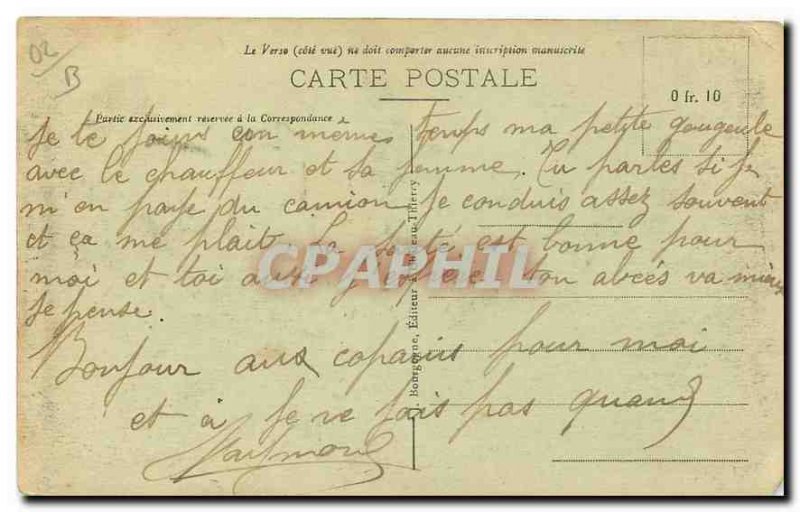 02
B
Le Verso (côté vue) ne doit comporter aucune inscription manuscrite
CARTE POSTALE
0 fr. 10
Partie exclusivement réservée à la Correspondance
Je te joins en mêmes temps ma petite gougeule
avec le chauffeur et sa femme. Tu parles si je
m'en paye du camion je conduis assez souvent
et ça me plait. La santé est bonne pour
moi et toi aussi j'espère ton abcés va mieux
je pense.
Bonjour aux copains pour moi
et à je ne sais pas quand
Raymond
Bourgogne, Éditeur à Château-Thierry
CPAPHIL